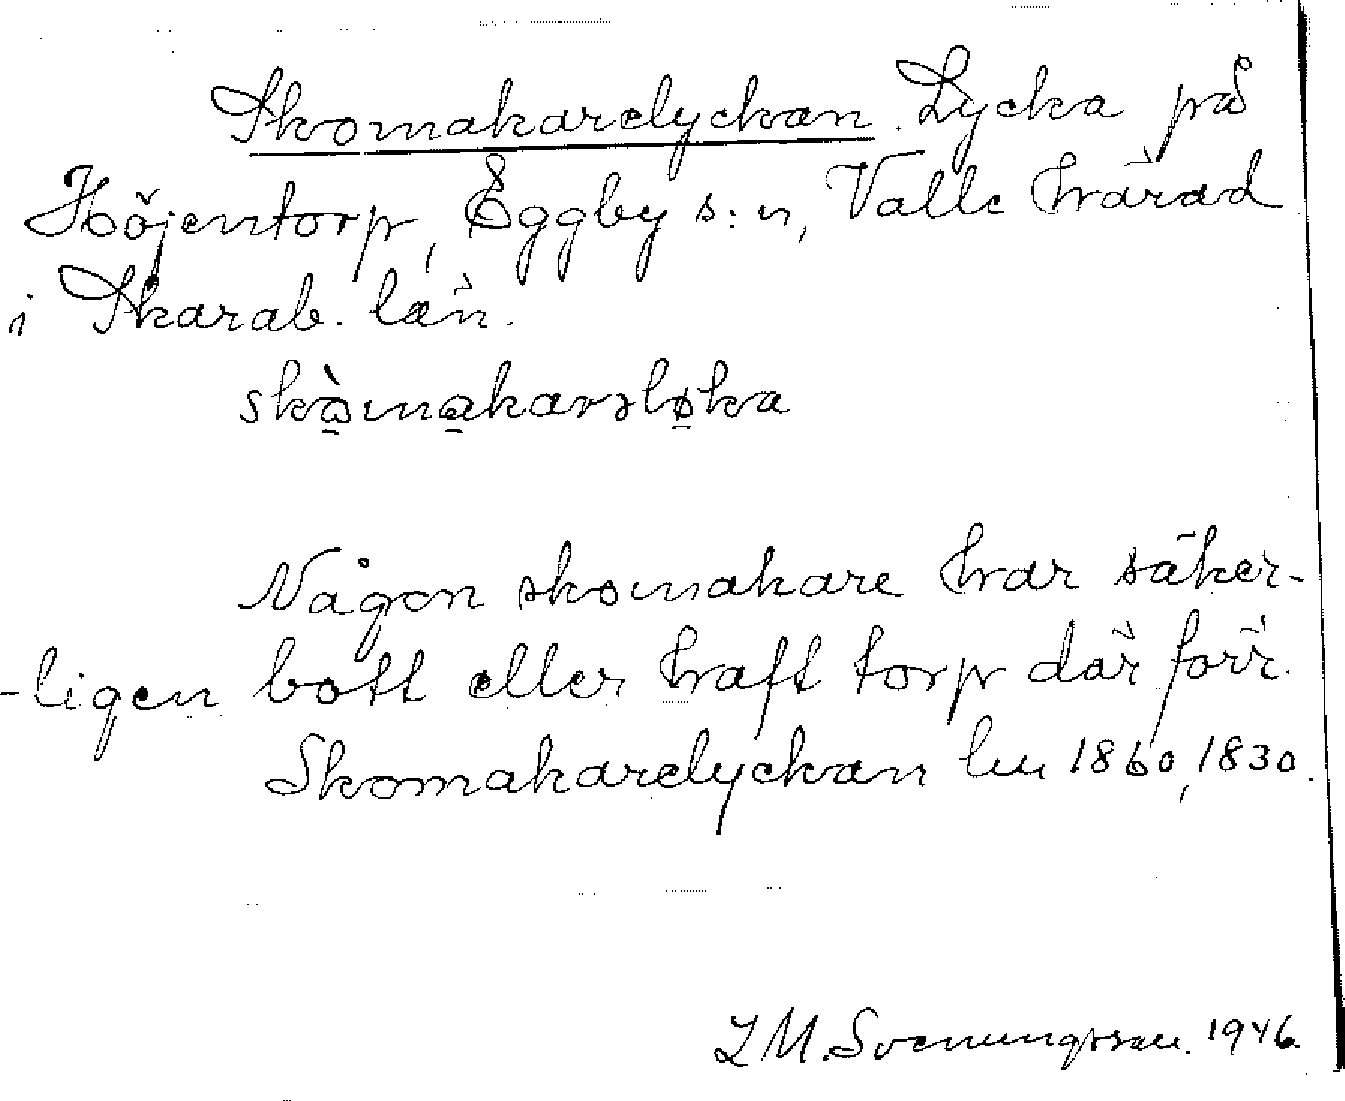 Skomakarelyckan. Lycka på
Höjentorp, Eggby s:n, Valle härad
i Skarab. län.
skòmakarsløka
Någon skomakare har säker-
-ligen bott eller haft torp där förr.
Skomakarelyckan lm 1860, 1830.
L M. Svenungsson. 1946.